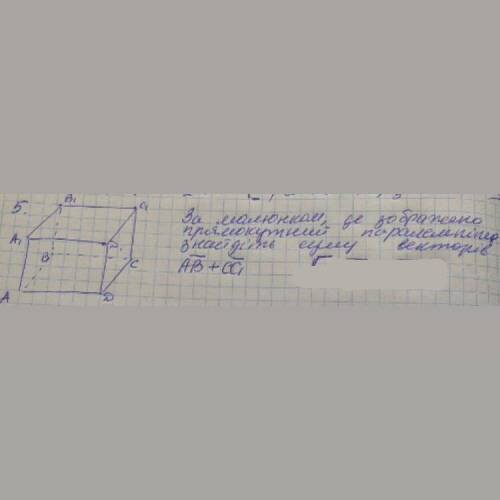 5.
B₁
C₁
A₁
D₁
B
C
A
D
За малюнком, де зображено
прямокутний паралелепіпед
знайдіть суму векторів
AB + CC₁